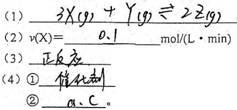 (1) 3X(g) + Y(g) ⇌ 2Z(g)
(2) v(X)= 0.1 mol/(L·min)
(3) 正反应
(4) ① 催化剂
② a.C。